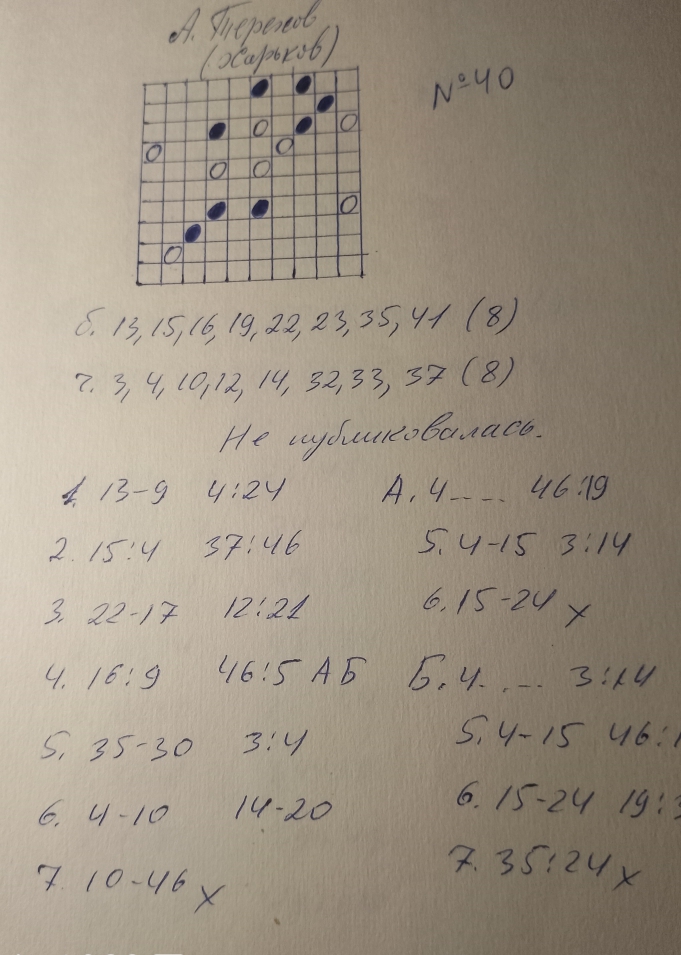 А. Терехов
(Харьков)
№40
б. 13, 15, 16, 19, 22, 23, 35, 41 (8)
ч. 3, 4, 10, 12, 14, 32, 33, 37 (8)
Не публиковалась.
1. 13-9 4:24
2. 15:4 37:46
3. 22-17 12:21
4. 16:9 46:5 А Б
5. 35-30 3:4
6. 4-10 14-20
7. 10-46 х
А. 4.... 46:19
5. 4-15 3:14
6. 15-24 х
Б. 4. .-- 3:14
5. 4-15 46:1
6. 15-24 19:3
7. 35:24 х